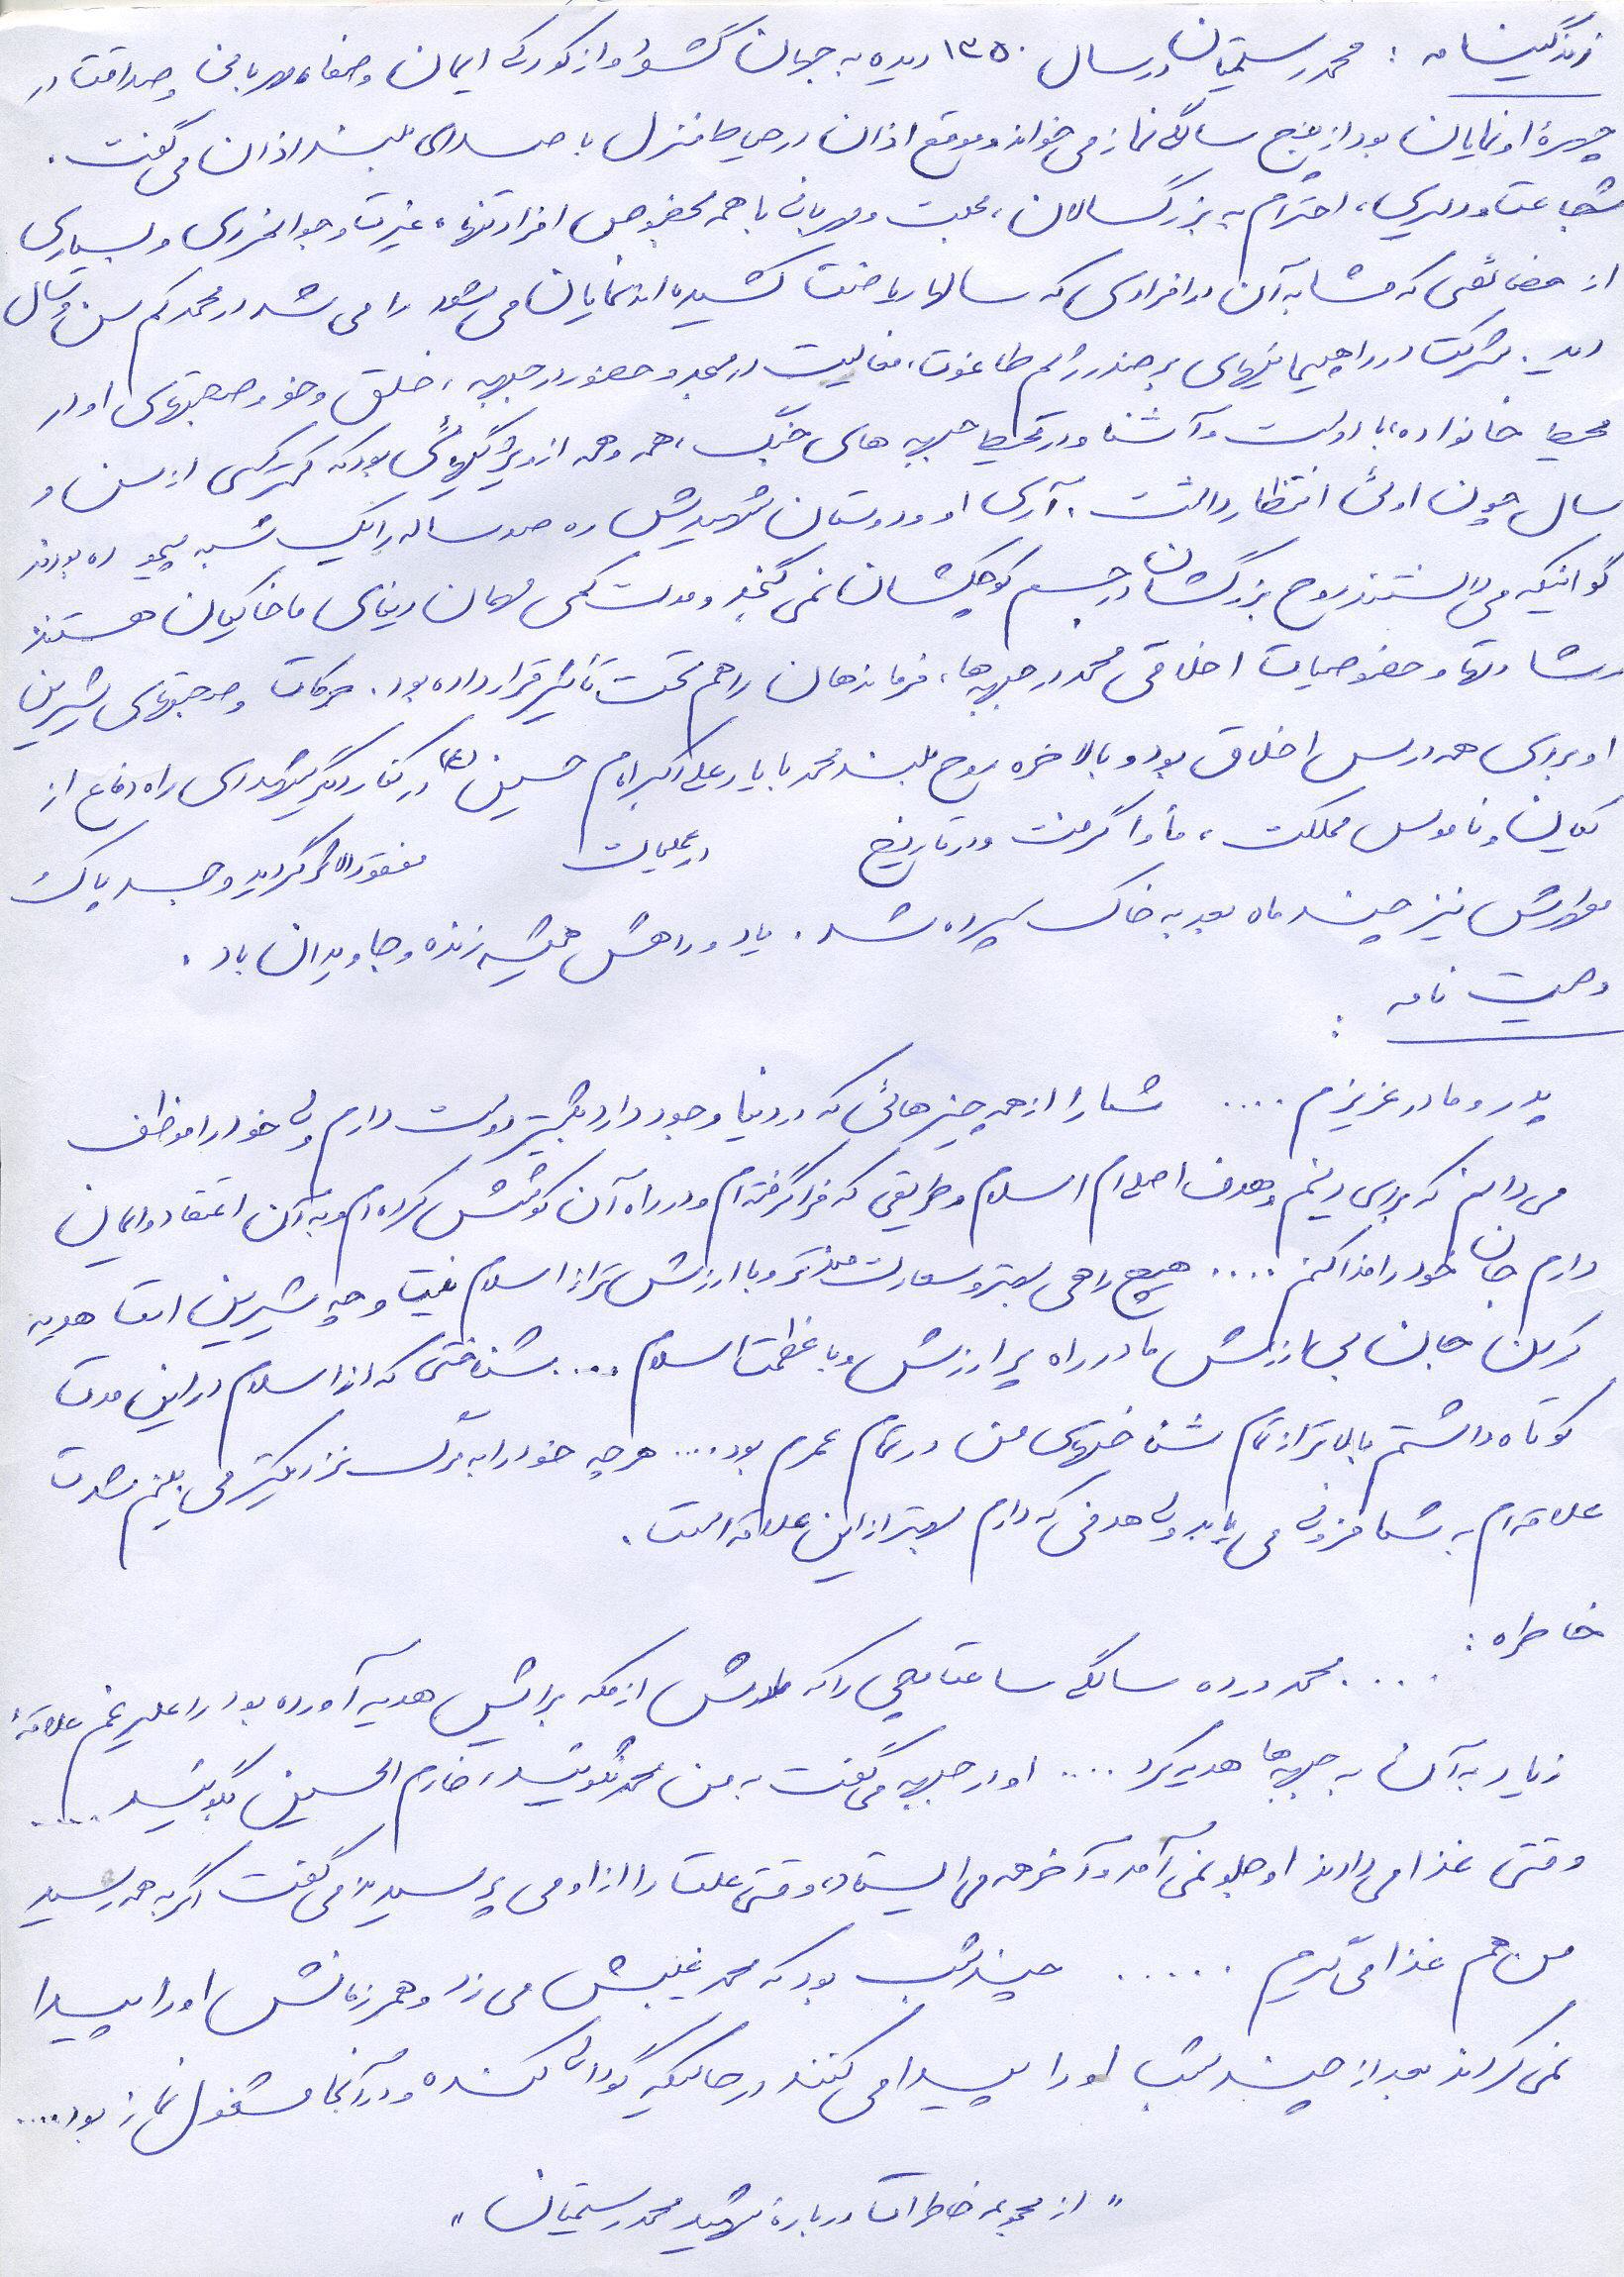 زندگینامه : محمد رستمیان در سال ۱۳۵۰ دیده به جهان گشود و از کودکی ایمان و صفا، مهربانی و صداقت در
چهرهٔ او نمایان بود از پنج سالگی نماز می خواند و موقع اذان در حیاط منزل با صدای بلند اذان می گفت .
شجاعت و دلیری، احترام به بزرگسالان، محبت و مهربانی با همه بخصوص افراد تنها، غیرت و جوانمردی و بسیاری
از خصائصی که مشابه آن در افرادی که سالها ریاضت کشیده اند نمایان می شود را می شد در محمد کم سن و سال
دید . شرکت در راهپیمائیهای بر ضد رژیم طاغوت، فعالیت در مسجد و حضور در جبهه ، خلق و خو و صحبتهای او در
محیط خانواده، با دوست و آشنا و در محیط جبهه های جنگ، همه و همه از ویژگیهائی بود که کمتر کسی از سن و
سال چون اوئی انتظار داشت . آری او و دوستان شهیدش ره صد ساله را یک شبه پیموده بودند
گو اینکه می دانستند روح بزرگشان در جسم کوچکشان نمی گنجد و مدت کمی مهمان دنیای ما خاکیان هستند
رشادتها و خصوصیات اخلاقی محمد در جبهه ها، فرماندهان را هم تحت تأثیر قرار داده بود . حرکات و صحبتهای شیرین
او برای همه درس اخلاق بود و بالاخره روح بلند محمد با یاد علی اکبر امام حسین (ع) در کنار دیگر شهدای راه دفاع از
کیان و ناموس مملکت ، مأوا گرفت و در تاریخ در عملیات مفقودالاثر گردید و جسد پاک
مطهرش نیز چند ماه بعد به خاک سپرده شد . یاد و راهش همیشه زنده و جاویدان باد .
وصیت نامه :
پدر و مادر عزیزم .... شما را از همه چیزهائی که در دنیا وجود دارد بیشتر دوست دارم ولی خود را موظف
می دانم که برای دینم و هدف اصلی ام اسلام و طریقی که فرا گرفته ام و در راه آن کوشش کرده ام و به آن اعتقاد و ایمان
دارم جان خود را فدا کنم .... هیچ راهی بهتر و سعادت مندتر و با ارزش تر از اسلام نیست و چه شیرین است هدیه
کردن جان بی ارزش ما در راه پر ارزش و با عظمت اسلام .... شناختی که از اسلام در این مدت
کوتاه داشتم بالاتر از تمام شناختهای من در تمام عمرم بود .... هر چه خود را به مرگ نزدیکتر می بینم شدت
علاقه ام به شما فزونی می یابد ولی هدفی که دارم بهتر از این علاقه است .
خاطره :
.... محمد در ده سالگی ساعت مچی را که مادرش از مکه برایش هدیه آورده بود را علیرغم علاقهٔ
زیاد به آن به جبهه ها هدیه کرد .... او در جبهه می گفت به من محمد نگوئید، خادم الحسین بگوئید .....
وقتی غذا می دادند او جلو نمی آمد و آخر همه می ایستاد، وقتی علت را از او می پرسیدند می گفت اگر به همه رسید
من هم غذا می گیرم ..... چند شب بود که محمد غیبش می زد و همرزمانش او را پیدا
نمی کردند بعد از چند شب او را پیدا می کنند در حالیکه گودالی کنده و در آنجا مشغول نماز بود ....
" از مجموعه خاطرات دربارهٔ شهید محمد رستمیان "